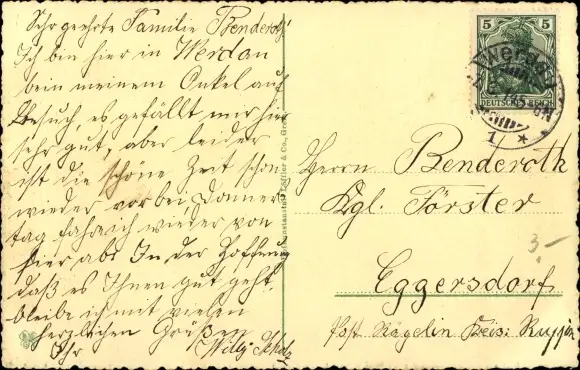 Sehr geehrte Familie Benderoth!
Ich bin hier in Werdau
bein meinem Onkel auf
Besuch, es gefällt mir hier
sehr gut, aber leider
ist die schöne Zeit schon
wieder vorbei Donners
tag fahre ich wieder von
hier ab. In der Hoffnung
daß es Ihnen gut geht
bleibe ich mit vielen
herzlichen Grüßen
Ihr Willy Scholz
5 5
DEUTSCHES REICH
Werdau
Herrn Benderoth
Kgl. Förster
3.-
Eggersdorf
Post Nägelin Kreis: Ruppin